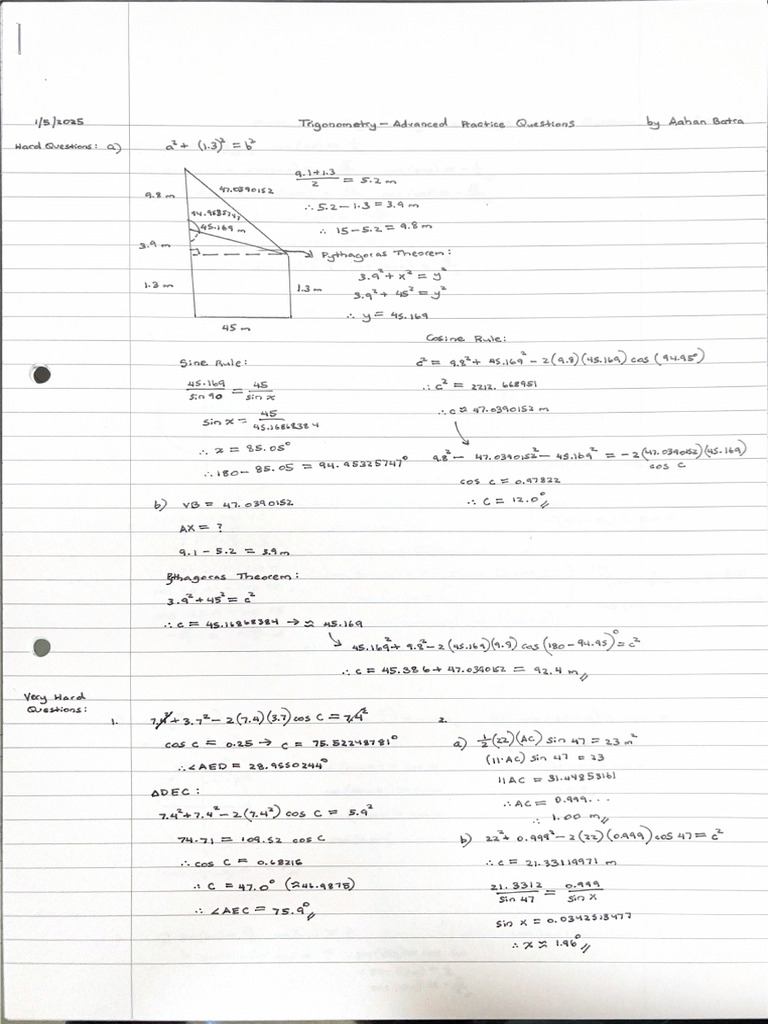 1/5/2025
Trigonometry – Advanced Practice Questions
by Aahan Batra
Hard Questions: a)
a² + (1.3)² = b²
9.8 m
47.0390152
94.9685747
45.169 m
3.9 m
1.3 m
1.3 m
45 m
9.1+1.3 / 2 = 5.2 m
∴ 5.2 − 1.3 = 3.9 m
∴ 15 − 5.2 = 9.8 m
Pythagoras Theorem:
3.9² + x² = y²
3.9² + 45² = y²
∴ y = 45.169
Sine Rule:
45.169 / sin 90 = 45 / sin x
sin x = 45 / 45.16868384
∴ x = 85.05°
∴ 180 − 85.05 = 94.95325747°
Cosine Rule:
c² = 9.8² + 45.169² − 2(9.8)(45.169) cos (94.95°)
∴ c² = 2212.668951
∴ c ≈ 47.0390152 m
9.8² − 47.0390152² − 45.169² = −2(47.0390152)(45.169)
cos C
cos C = 0.97822
∴ C = 12.0°
b) VB = 47.0390152
AX = ?
9.1 − 5.2 = 3.9 m
Pythagoras Theorem:
3.9² + 45² = c²
∴ c = 45.16868384 → ≈ 45.169
45.169² + 9.8² − 2(45.169)(9.8) cos (180 − 94.95)° = c²
∴ c = 45.386 + 47.0390152 = 92.4 m
Very Hard
Questions:
1.
7.4² + 3.7² − 2(7.4)(3.7) cos C = 7.4²
cos C = 0.25 → C = 75.52248781°
∴ ∠AED = 28.9550244°
△DEC:
7.4² + 7.4² − 2(7.4²) cos C = 5.9²
74.71 = 109.52 cos C
∴ cos C = 0.68216
∴ C = 47.0° (≈46.9875)
∴ ∠AEC = 75.9°
2.
a) ½(22)(AC) sin 47 = 23 m²
(11·AC) sin 47 = 23
11AC = 31.44853161
∴ AC = 0.999...
∴ 1.00 m
b) 22² + 0.999² − 2(22)(0.999) cos 47 = c²
∴ c = 21.33119971 m
21.3312 / sin 47 = 0.999 / sin x
sin x = 0.0342513477
∴ x ≈ 1.96°